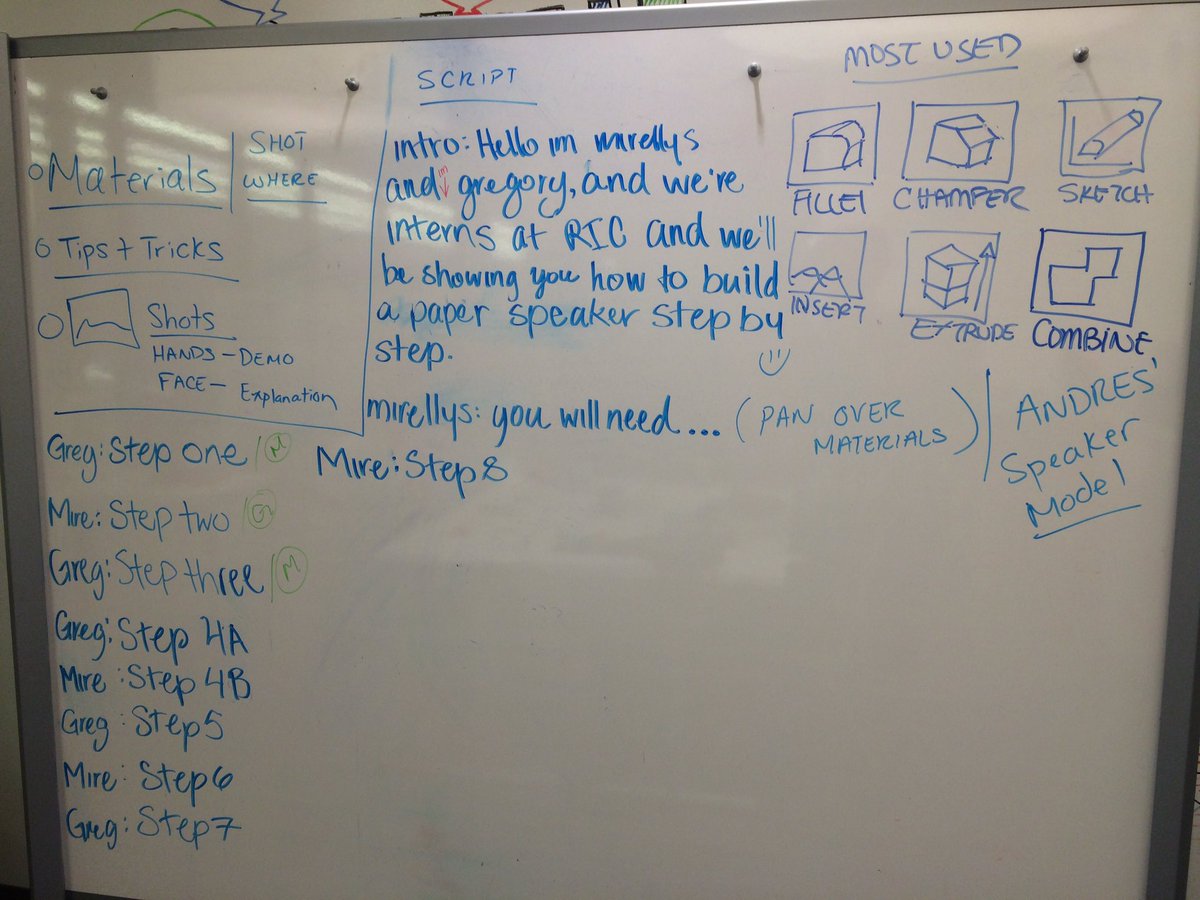 Materials
SHOT
WHERE
Tips + Tricks
Shots
HANDS - DEMO
FACE - Explanation
SCRIPT
intro: Hello im mirellys
and im gregory, and we're
interns at RIC and we'll
be showing you how to build
a paper speaker step by
step.
mirellys: you will need... (PAN OVER
MATERIALS)
MOST USED
FILLET
CHAMFER
SKETCH
INSERT
EXTRUDE
COMBINE
ANDRES'
Speaker
Model
Greg: Step one / M
Mire: Step two / G
Greg: Step three / M
Greg: Step 4A
Mire: Step 4B
Greg: Step 5
Mire: Step 6
Greg: Step 7
Mire: Step 8